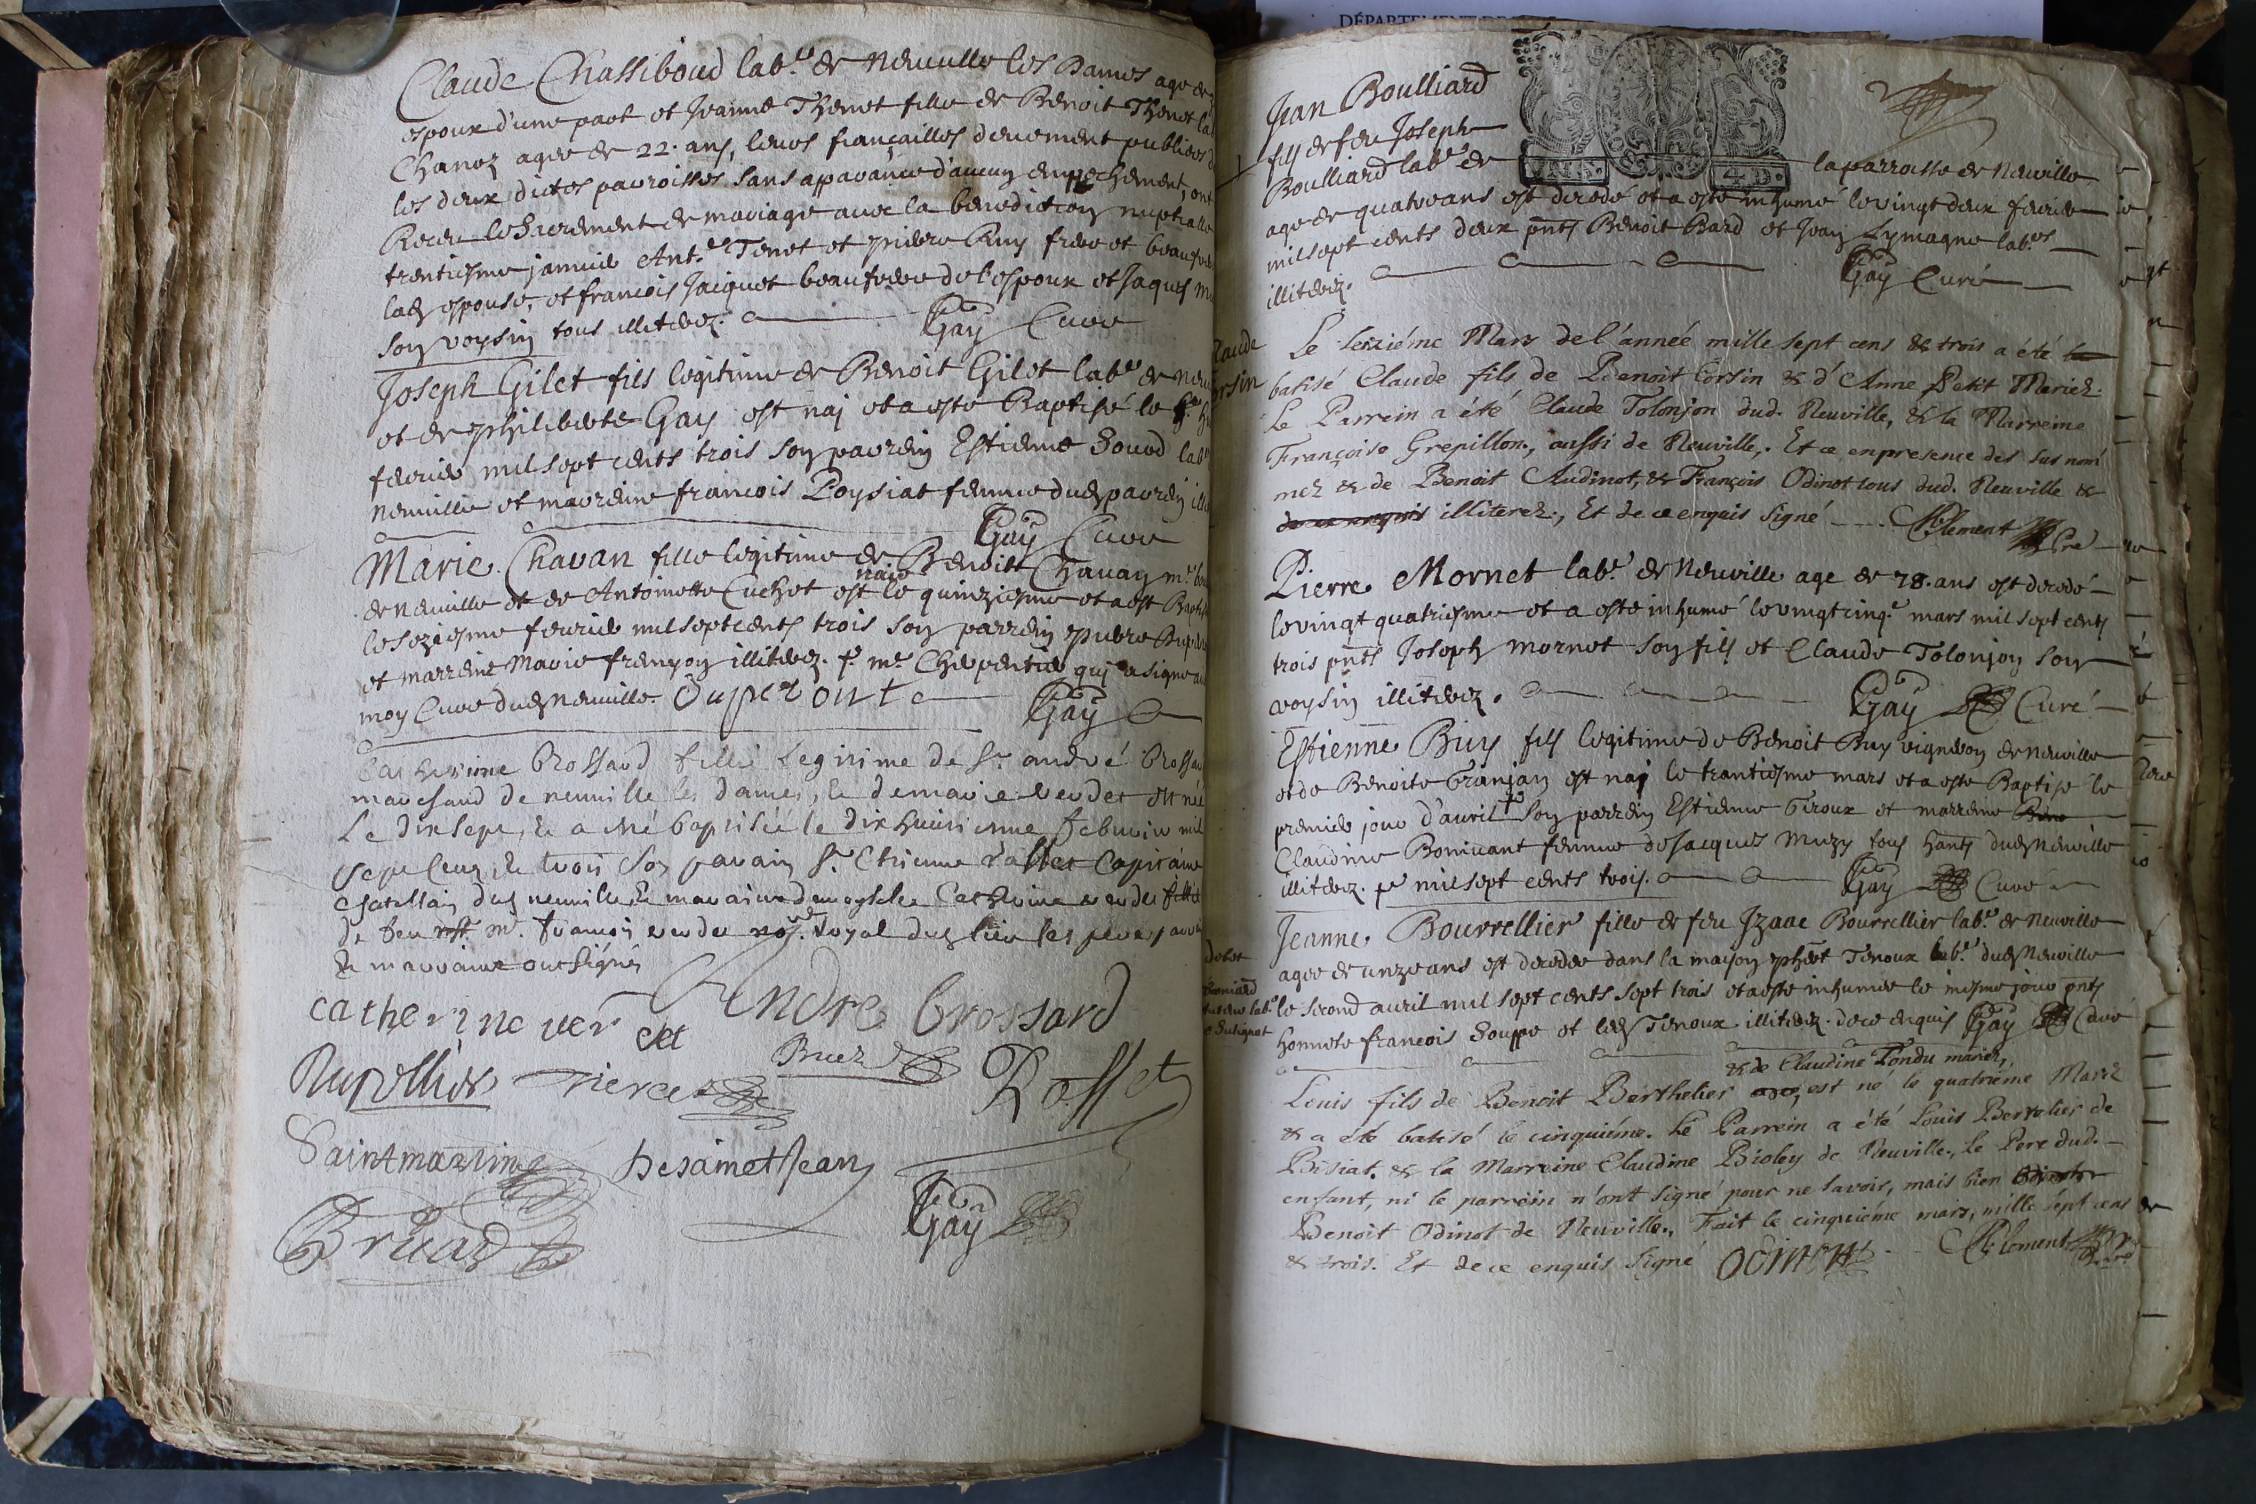 Claude Chassiboud lab.r de neuville les Dames age de
espoux d'une part et Jeanne Thenot fille de Benoit Thenot
Chanoz agee de 22. ans, leurs fiançailles deuement publiees
les deux dictes parroisses sans apparance d'aucun empechement, ont
Receu le Sacrement de mariage avec la benediction nuptialle
trentiesme janvier Ant.e Tenot et pierre Buy frere et beaufrere
lad espouse, et francois Jacquet beaufrere de l'espoux et Jaques
son voysin tous illiterez. Gay Curé
Joseph Gilet fils legitime de Benoit Gilet lab.r de
et de philiberte Gay est naj et a esté Baptisé le
fevrier mil sept cents trois son parrein Estienne Soud lab
neuville et marreine francois Poysiat femme dud parrein
Gay Curé
Marie Chavan fille legitime de Benoist Chavan m.e
de neuville et de Antoinette Cuchet est naie le quinziesme et a est
le seziesme fevrier mil sept cents trois son parrein pierre
et marreine Marie frençon illiterez. m.e Cherpentier qui a signe
moy Curé dud neuville. Duperont Gay
Catherine Brossard fille legitime de S.r andré Brossard
marchand de neuville les dames, & de marie verdet est née
Le dix sept, & a été baptisée le dix huitienne febvrier mil
sept cens & trois son parain S.r Etienne rasset Capitaine
chatellain dud neuville & maraine demoyselle Catherine verdet fille
de feu m.e francois verdet no.re Royal dud lieu les père parain
& marraine ont signés
catherine verdet Andre brossard
Rupollier Piercet Buez Rosset
Saintmartin Desamet Jean
Bruard Gay
DÉPARTEMENT DE
Jean Boulliard
fils de feu Joseph
Boulliard lab.r de la parroisse de Neuville
age de quatre ans est decedé et a esté inhumé le vingt deux fevrier
mil sept cents deux pnts Benoit Bard et Jean Lymagne lab.rs
illiterez. Gay Curé
Claude
Corsin
Le seiziéme Mars de l'année mille sept cens & trois a été
batisé Claude fils de Benoit Corsin & d'Anne Petit Mariez.
Le Parrein a été Claude Tolonjon dud. Neuville, & la Marreine
Françoise Grepillon, aussi de Neuville. Et ce en presence des sus nom
mez & de Benoit Audinot, & François Odinot tous dud. Neuville &
illiterez, Et de ce enquis signé Clement
Pierre Mornet lab.r de Neuville age de 78. ans est decedé
le vingt quatriesme et a esté inhumé le vingt cinq.e mars mil sept cents
trois pnts Joseph mornet son fils et Claude Tolonjon son
voysin illiterez. Gay Curé
Estienne Buy fils legitime de Benoit Buy vigneron de neuville
et de Benoite Granjan est naj le trantiesme mars et a esté Baptisé le
premier jour d'avril son parrein Estienne Giroux et marreine
Claudine Bonivant femme de Jacques Muzy tous hants dud Neuville
illiterez. mil sept cents trois. Gay Curé
Jeanne Bourrellier fille de feu Izaac Bourrellier lab.r de neuville
agee de unze ans est decedee dans la maison Tenoux lab.r dud Neuville
le second avril mil sept cents sept trois et a esté inhumee le mesme jour pnts
honnete francois Souppe et led Tenoux illiterez. de ce enquis Gay Curé
& de Claudine Pondu mariez,
Louis fils de Benoit Berthelier est né le quatriéme Mars
& a été batisé le cinquiéme. Le Parrein a été Louis Bertelier de
Bisiat, & la Marreine Claudine Bioley de Neuville, Le Pere dud.
enfant, ni le parrein n'ont signé pour ne savoir, mais bien
Benoit Odinot de Neuville, Fait le cinquiéme mars, mille sept cens
& trois. Et de ce enquis signé Odinot Clement